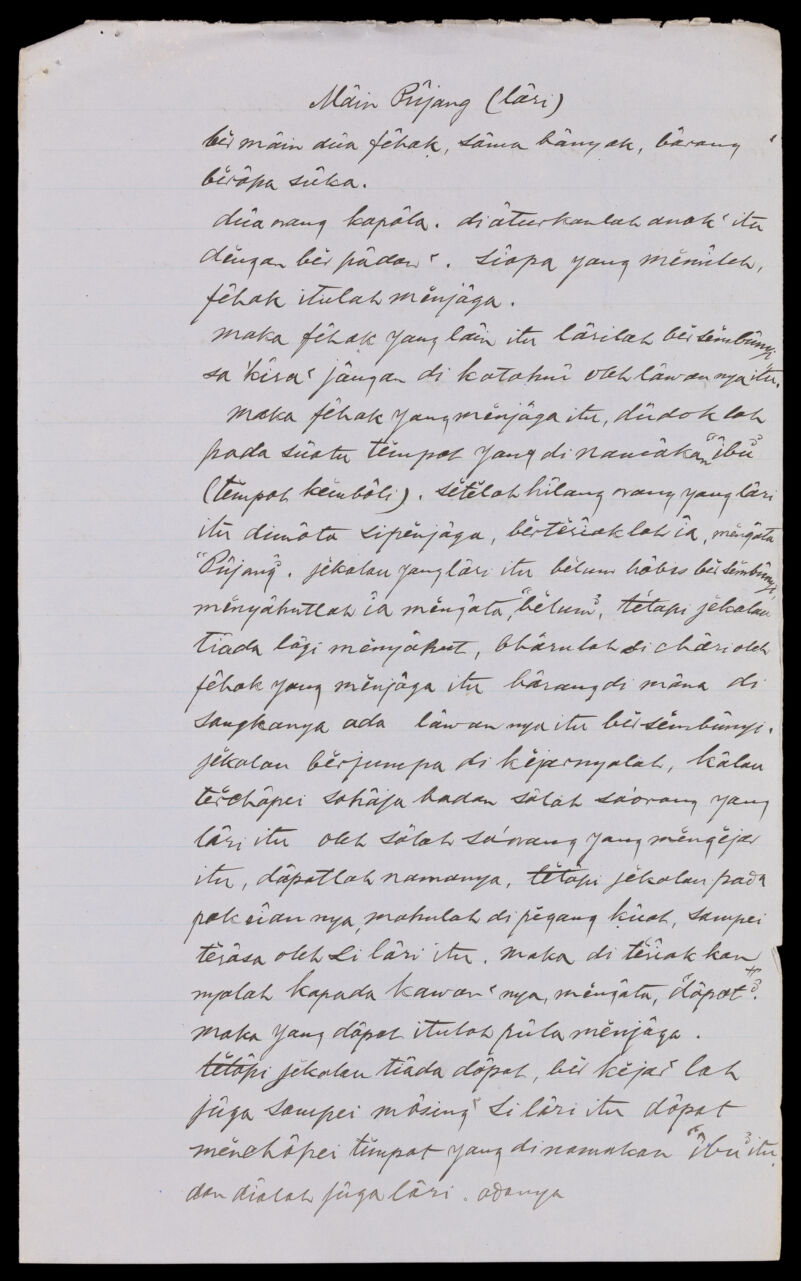 Mâin Pûjang (lâri)
bĕr mâin dûa fêhak, sâma bânyak, bârang
bĕrâpa sûka.
dûa orang kapâla. di âturkanlah anak ʿ itu
dĕngan bĕr pâdan ʿ. siâpa yang mĕmîleh,
fêhak itulah mĕnjâga.
maka fêhak yang lâin itu lârilah bĕr sĕmbûnyi
sa kîra ʿ jângan di katahuî oleh lâwan nya itu.
maka fêhak yang mĕnjâga itu, dûdok lah
pada sûatu tĕmpat yang di namâkan "îbu"
(tĕmpat kĕmbâli). sĕtĕlah hîlang orang yang lâri
itu dimâta sipĕnjâga, bĕrtĕriak lah îa, mĕngâta
"Pûjang". jĕkalau yang lâri itu bĕlum hâbis bĕr sĕmbûnyi,
mĕnyâhutlah îa mĕngâta, "bĕlum", tĕtapi jĕkalau
tiâda lâgi mĕnyâhut, bhârulah di châri oleh
fêhak yang mĕnjâga itu bârang di mâna di
sangkanya ada lâwan nya itu bĕr sĕmbûnyi.
jĕkalau bĕrjumpa di kĕjarnyalah, kâlau
tĕrchâpei sahâja badan sâlah sa'orang yang
lâri itu oleh sâlah sa'orang yang mĕngĕjar
itu, dâpatlah namanya, tĕtâpi jĕkalau pada
pakeian nya, mahulah di pĕgang kûat, sampei
tĕrâsa oleh si lâri itu. maka di tĕriak kan
nyalah kapada kawan ʿ nya, mĕngâta, "dâpat".
maka yang dâpat itulah pûla mĕnjâga.
tĕtâpi jĕkalau tiâda dâpat, bĕr kĕjar ʿ lah
jûga sampei mâsing ʿ si lâri itu dâpat
mĕnchâpei tĕmpat yang di namakan "îbu" itu,
dan dîalah jûga lâri. adanya